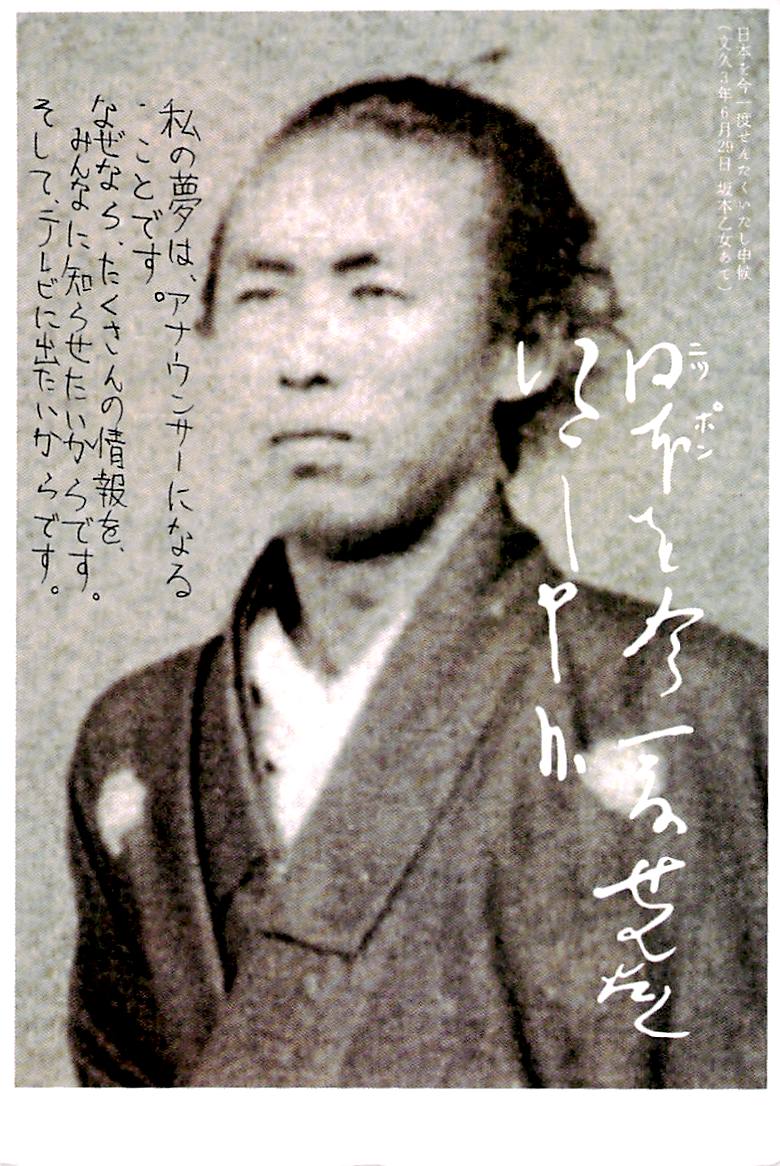 日本を今一度せんたくいたし申候
(文久3年6月29日 坂本乙女あて)
日本を今一度せんたく
ニッポン
いたし申候
私の夢は、アナウンサーになる
ことです。
なぜなら、たくさんの情報を、
みんなに知らせたいからです。
そして、テレビに出たいからです。